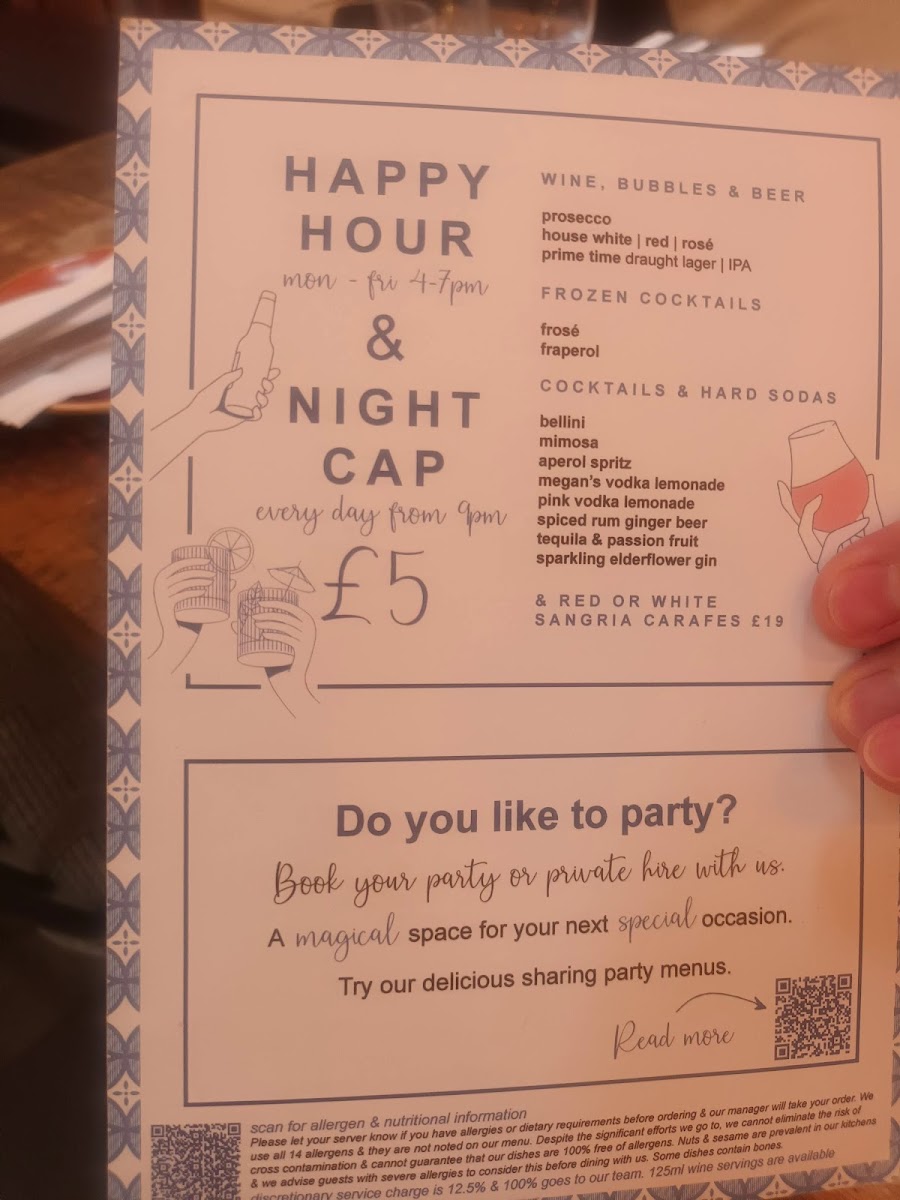 HAPPY
HOUR
mon - fri 4-7pm
&
NIGHT
CAP
every day from 9pm
£5
WINE, BUBBLES & BEER
prosecco
house white | red | rosé
prime time draught lager | IPA
FROZEN COCKTAILS
frosé
fraperol
COCKTAILS & HARD SODAS
bellini
mimosa
aperol spritz
megan's vodka lemonade
pink vodka lemonade
spiced rum ginger beer
tequila & passion fruit
sparkling elderflower gin
& RED OR WHITE
SANGRIA CARAFES £19
Do you like to party?
Book your party or private hire with us.
A magical space for your next special occasion.
Try our delicious sharing party menus.
Read more
scan for allergen & nutritional information
Please let your server know if you have allergies or dietary requirements before ordering & our manager will take your order. We
use all 14 allergens & they are not noted on our menu. Despite the significant efforts we go to, we cannot eliminate the risk of
cross contamination & cannot guarantee that our dishes are 100% free of allergens. Nuts & sesame are prevalent in our kitchens
& we advise guests with severe allergies to consider this before dining with us. Some dishes contain bones.
discretionary service charge is 12.5% & 100% goes to our team. 125ml wine servings are available